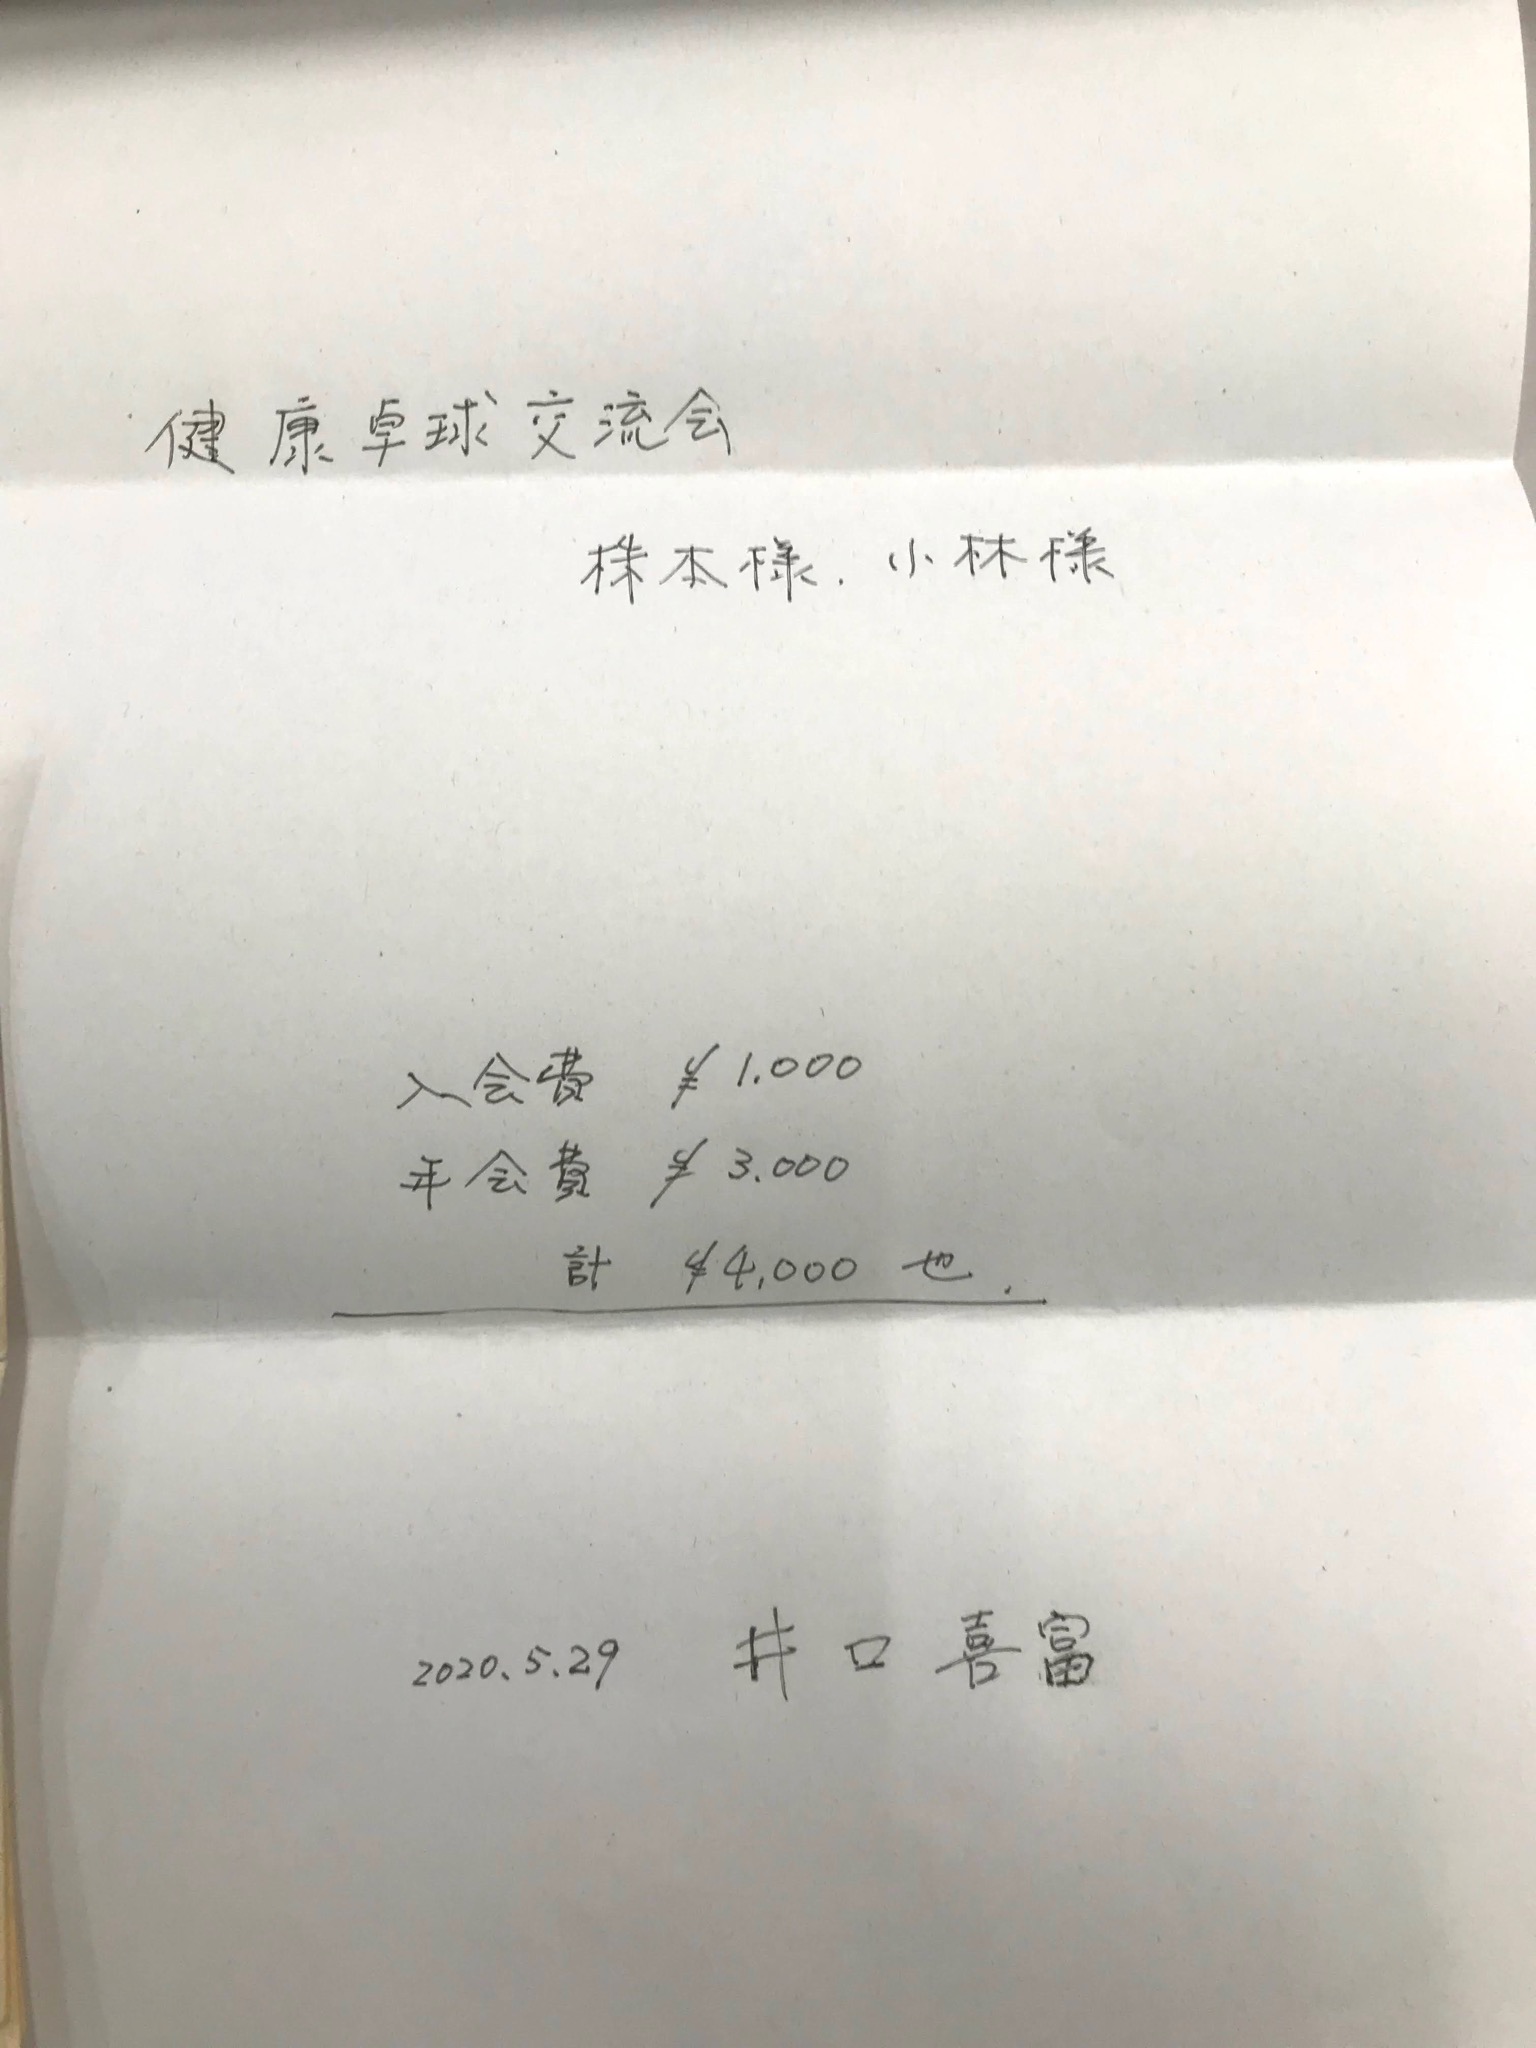 健康卓球交流会
株本様. 小林様
入会費 ¥1.000
年会費 ¥3.000
計 ¥4,000 也.
2020.5.29 井口喜富